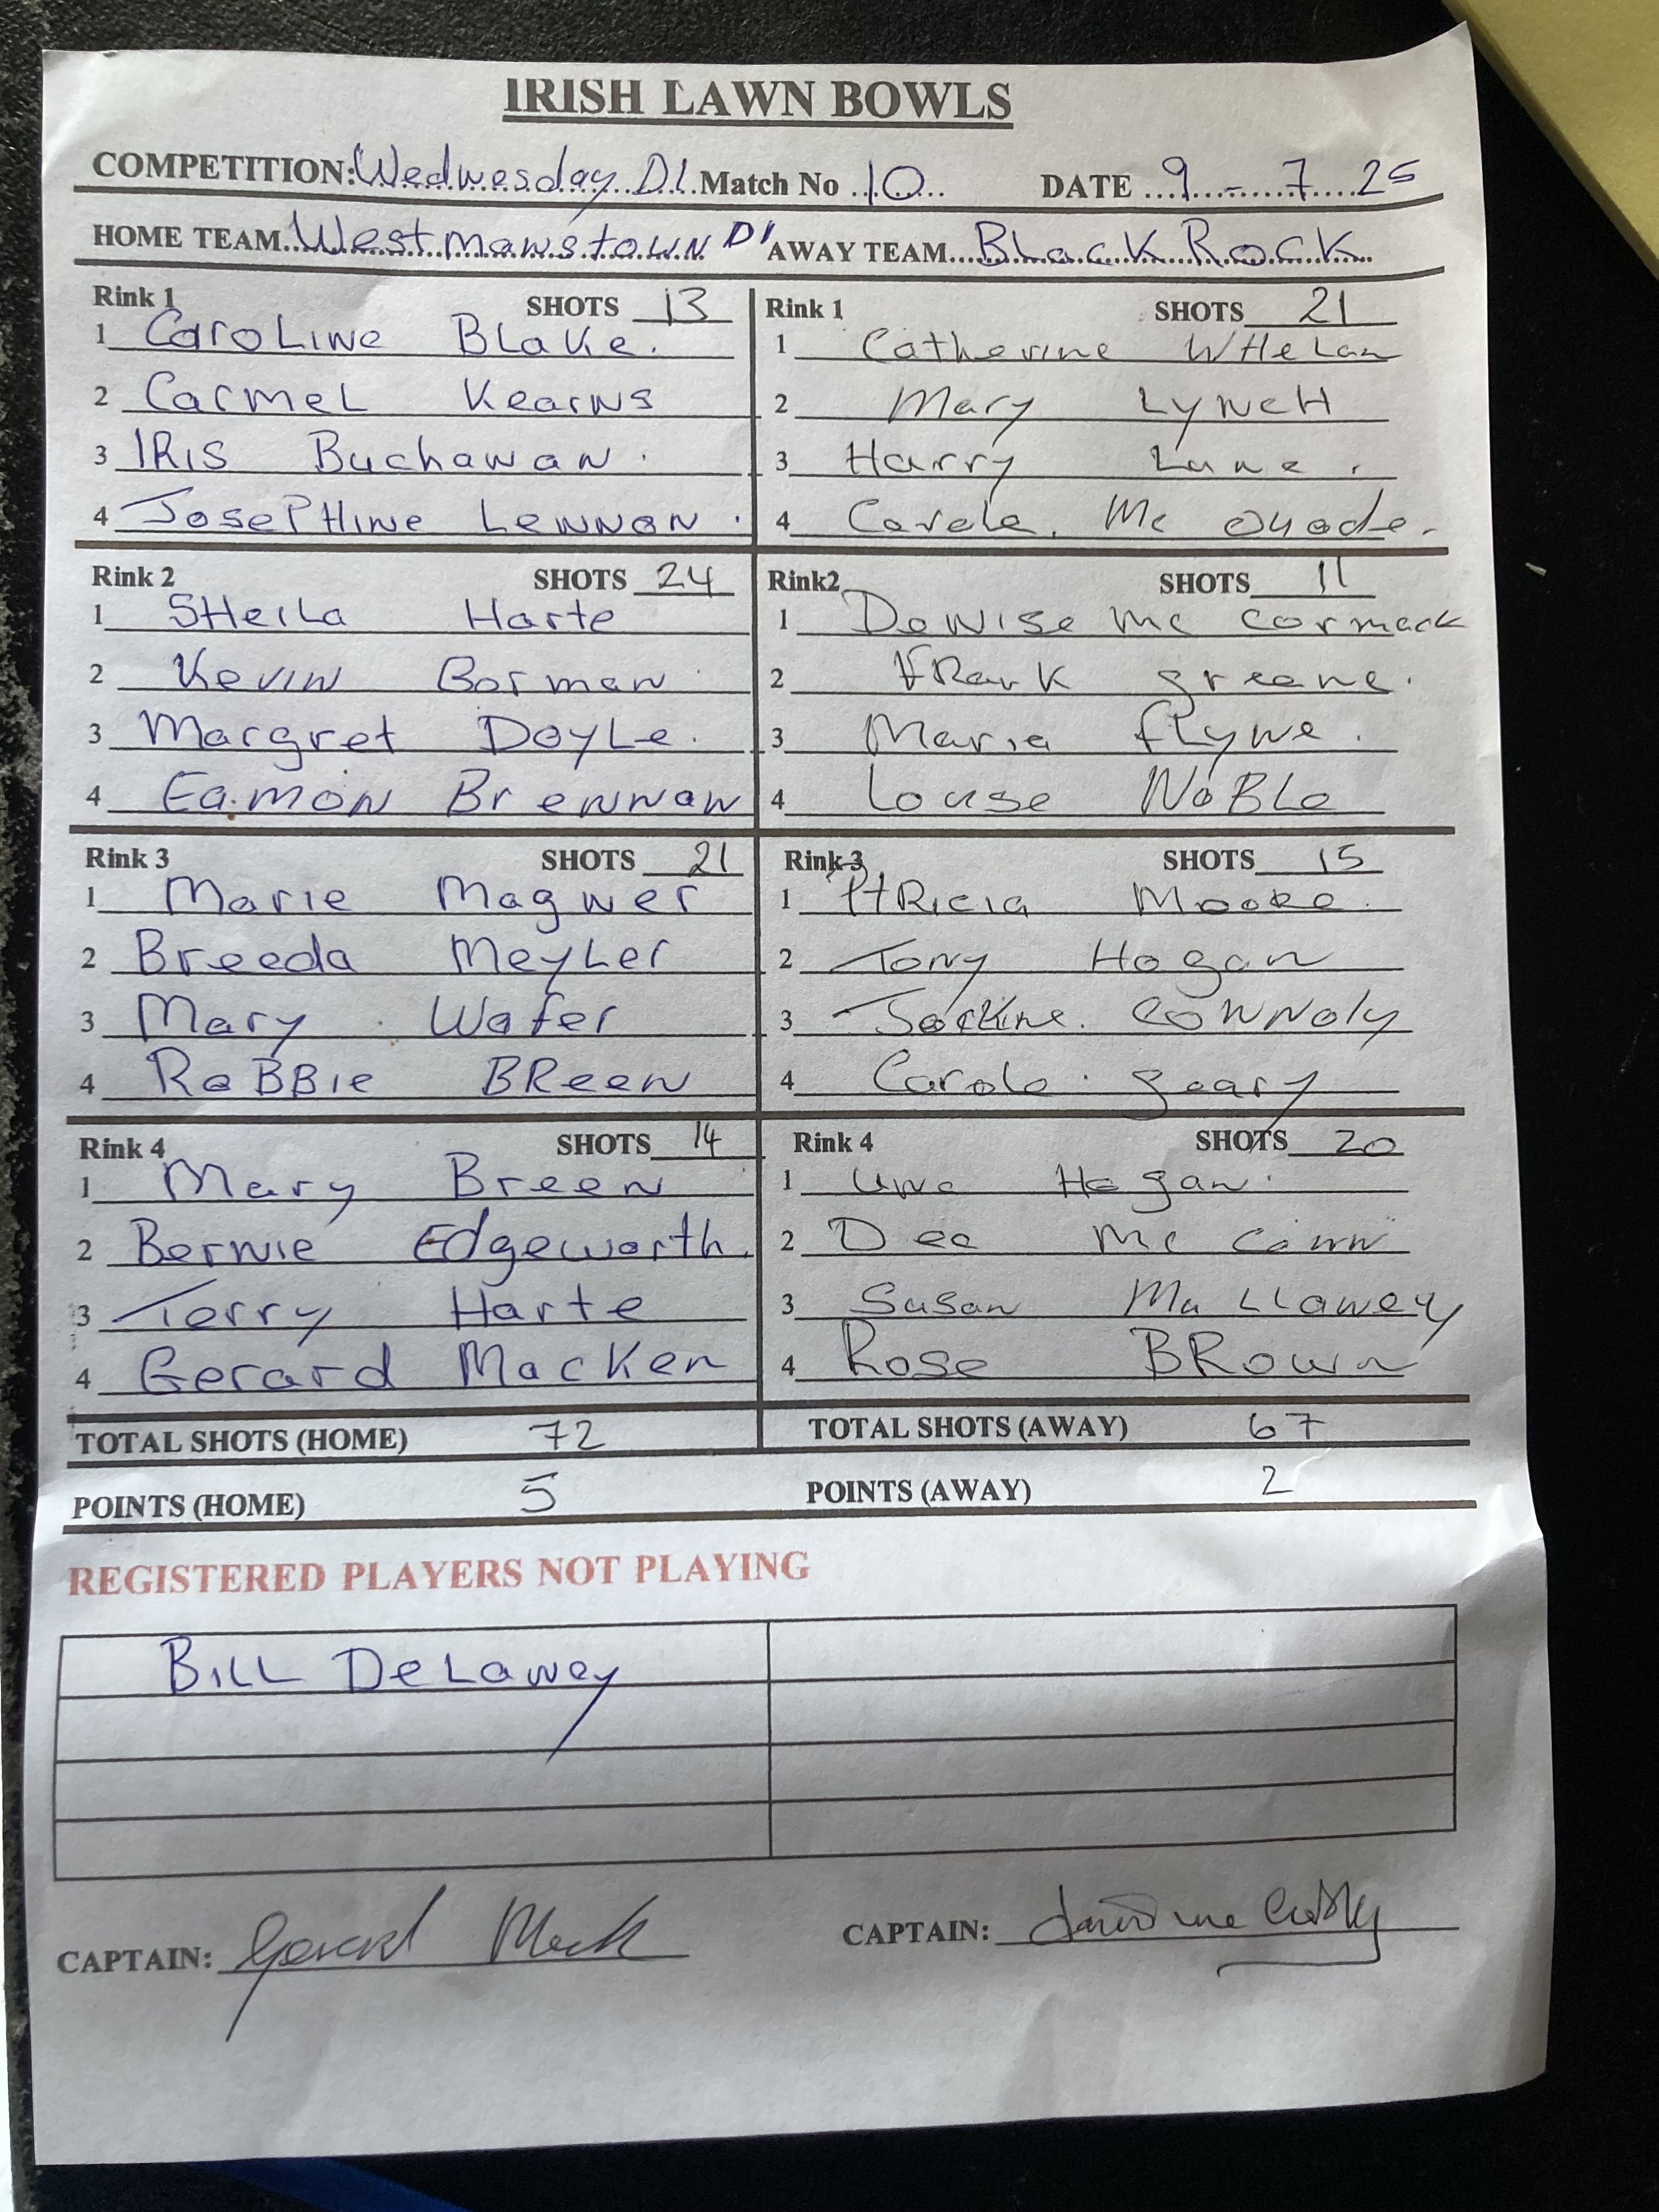 IRISH LAWN BOWLS
COMPETITION: Wednesday D1 Match No 10 DATE 9 - 7 25
HOME TEAM Westmanstown D1 AWAY TEAM Black Rock
Rink 1 SHOTS 13
1 Caroline Blake.
2 Carmel Kearns
3 IRIS Buchanan.
4 Josephine Lennon.
Rink 1 SHOTS 21
1 Catherine Whelan
2 Mary Lynch
3 Harry Lane.
4 Carole. Mc Quade.
Rink 2 SHOTS 24
1 Sheila Harte
2 Kevin Borman
3 Margret Doyle.
4 Eamon Brennan
Rink2 SHOTS 11
1 Denise Mc Cormack
2 Frank greene.
3 Maria flynne.
4 Louse Noble
Rink 3 SHOTS 21
1 Marie Magner
2 Breeda Meyler
3 Mary Wafer
4 Robbie Breen
Rink 3 SHOTS 15
1 Moore.
2 Tony Hogan
3 Connoly
4 Carole. geary
Rink 4 SHOTS 14
1 Mary Breen
2 Bernie Edgeworth.
3 Terry Harte
4 Gerard Macken
Rink 4 SHOTS 20
1 Una Hogan.
2 Dee Mc Cann
3 Susan Mullaney
4 Rose Brown
TOTAL SHOTS (HOME) 72 TOTAL SHOTS (AWAY) 67
POINTS (HOME) 5 POINTS (AWAY) 2
REGISTERED PLAYERS NOT PLAYING
Bill Delaney
CAPTAIN: Gerard CAPTAIN: